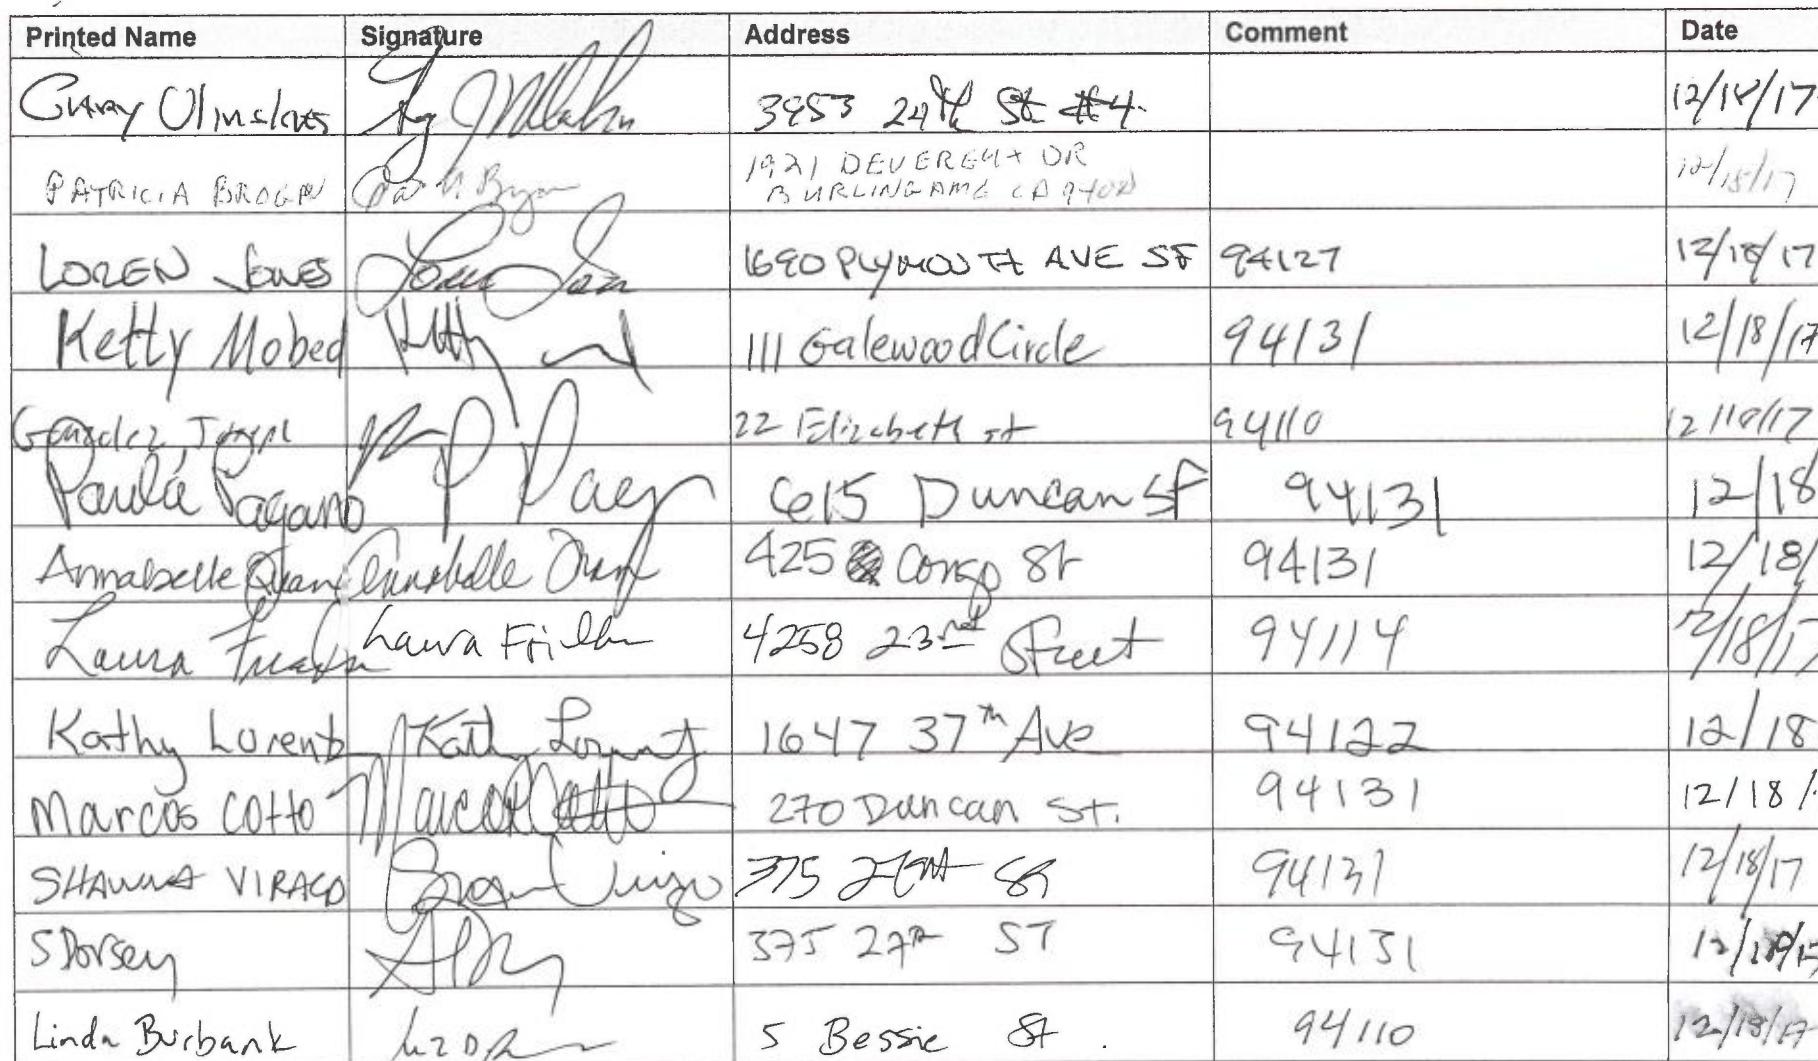 Printed Name Signature Address Comment Date
Gary 3953 24th St #4. 12/18/17
PATRICIA BROGAN 1921 DEVEREUX DR
BURLINGAME CA 12/18/17
LOREN JONES 1690 PLYMOUTH AVE SF 94127 12/18/17
Ketty Mobed 111 Galewood Circle 94131 12/18/17
22 Elizabeth st 94110 12/18/17
Paula Pagano 615 Duncan St 94131 12/18
Annabelle Annabelle 425 Congo St 94131 12/18/
Laura Laura 4258 23rd Street 94114 12/18/17
Kathy Lorentz Kathy Lorentz 1647 37th Ave 94122 12/18
Marcos Cotto Marcos Cotto 270 Duncan St. 94131 12/18/
SHAWNA VIRAGO 375 St 94131 12/18/17
S Dorsey 375 27th ST 94131 12/18/17
Linda Burbank 5 Bessie St. 94110 12/18/17